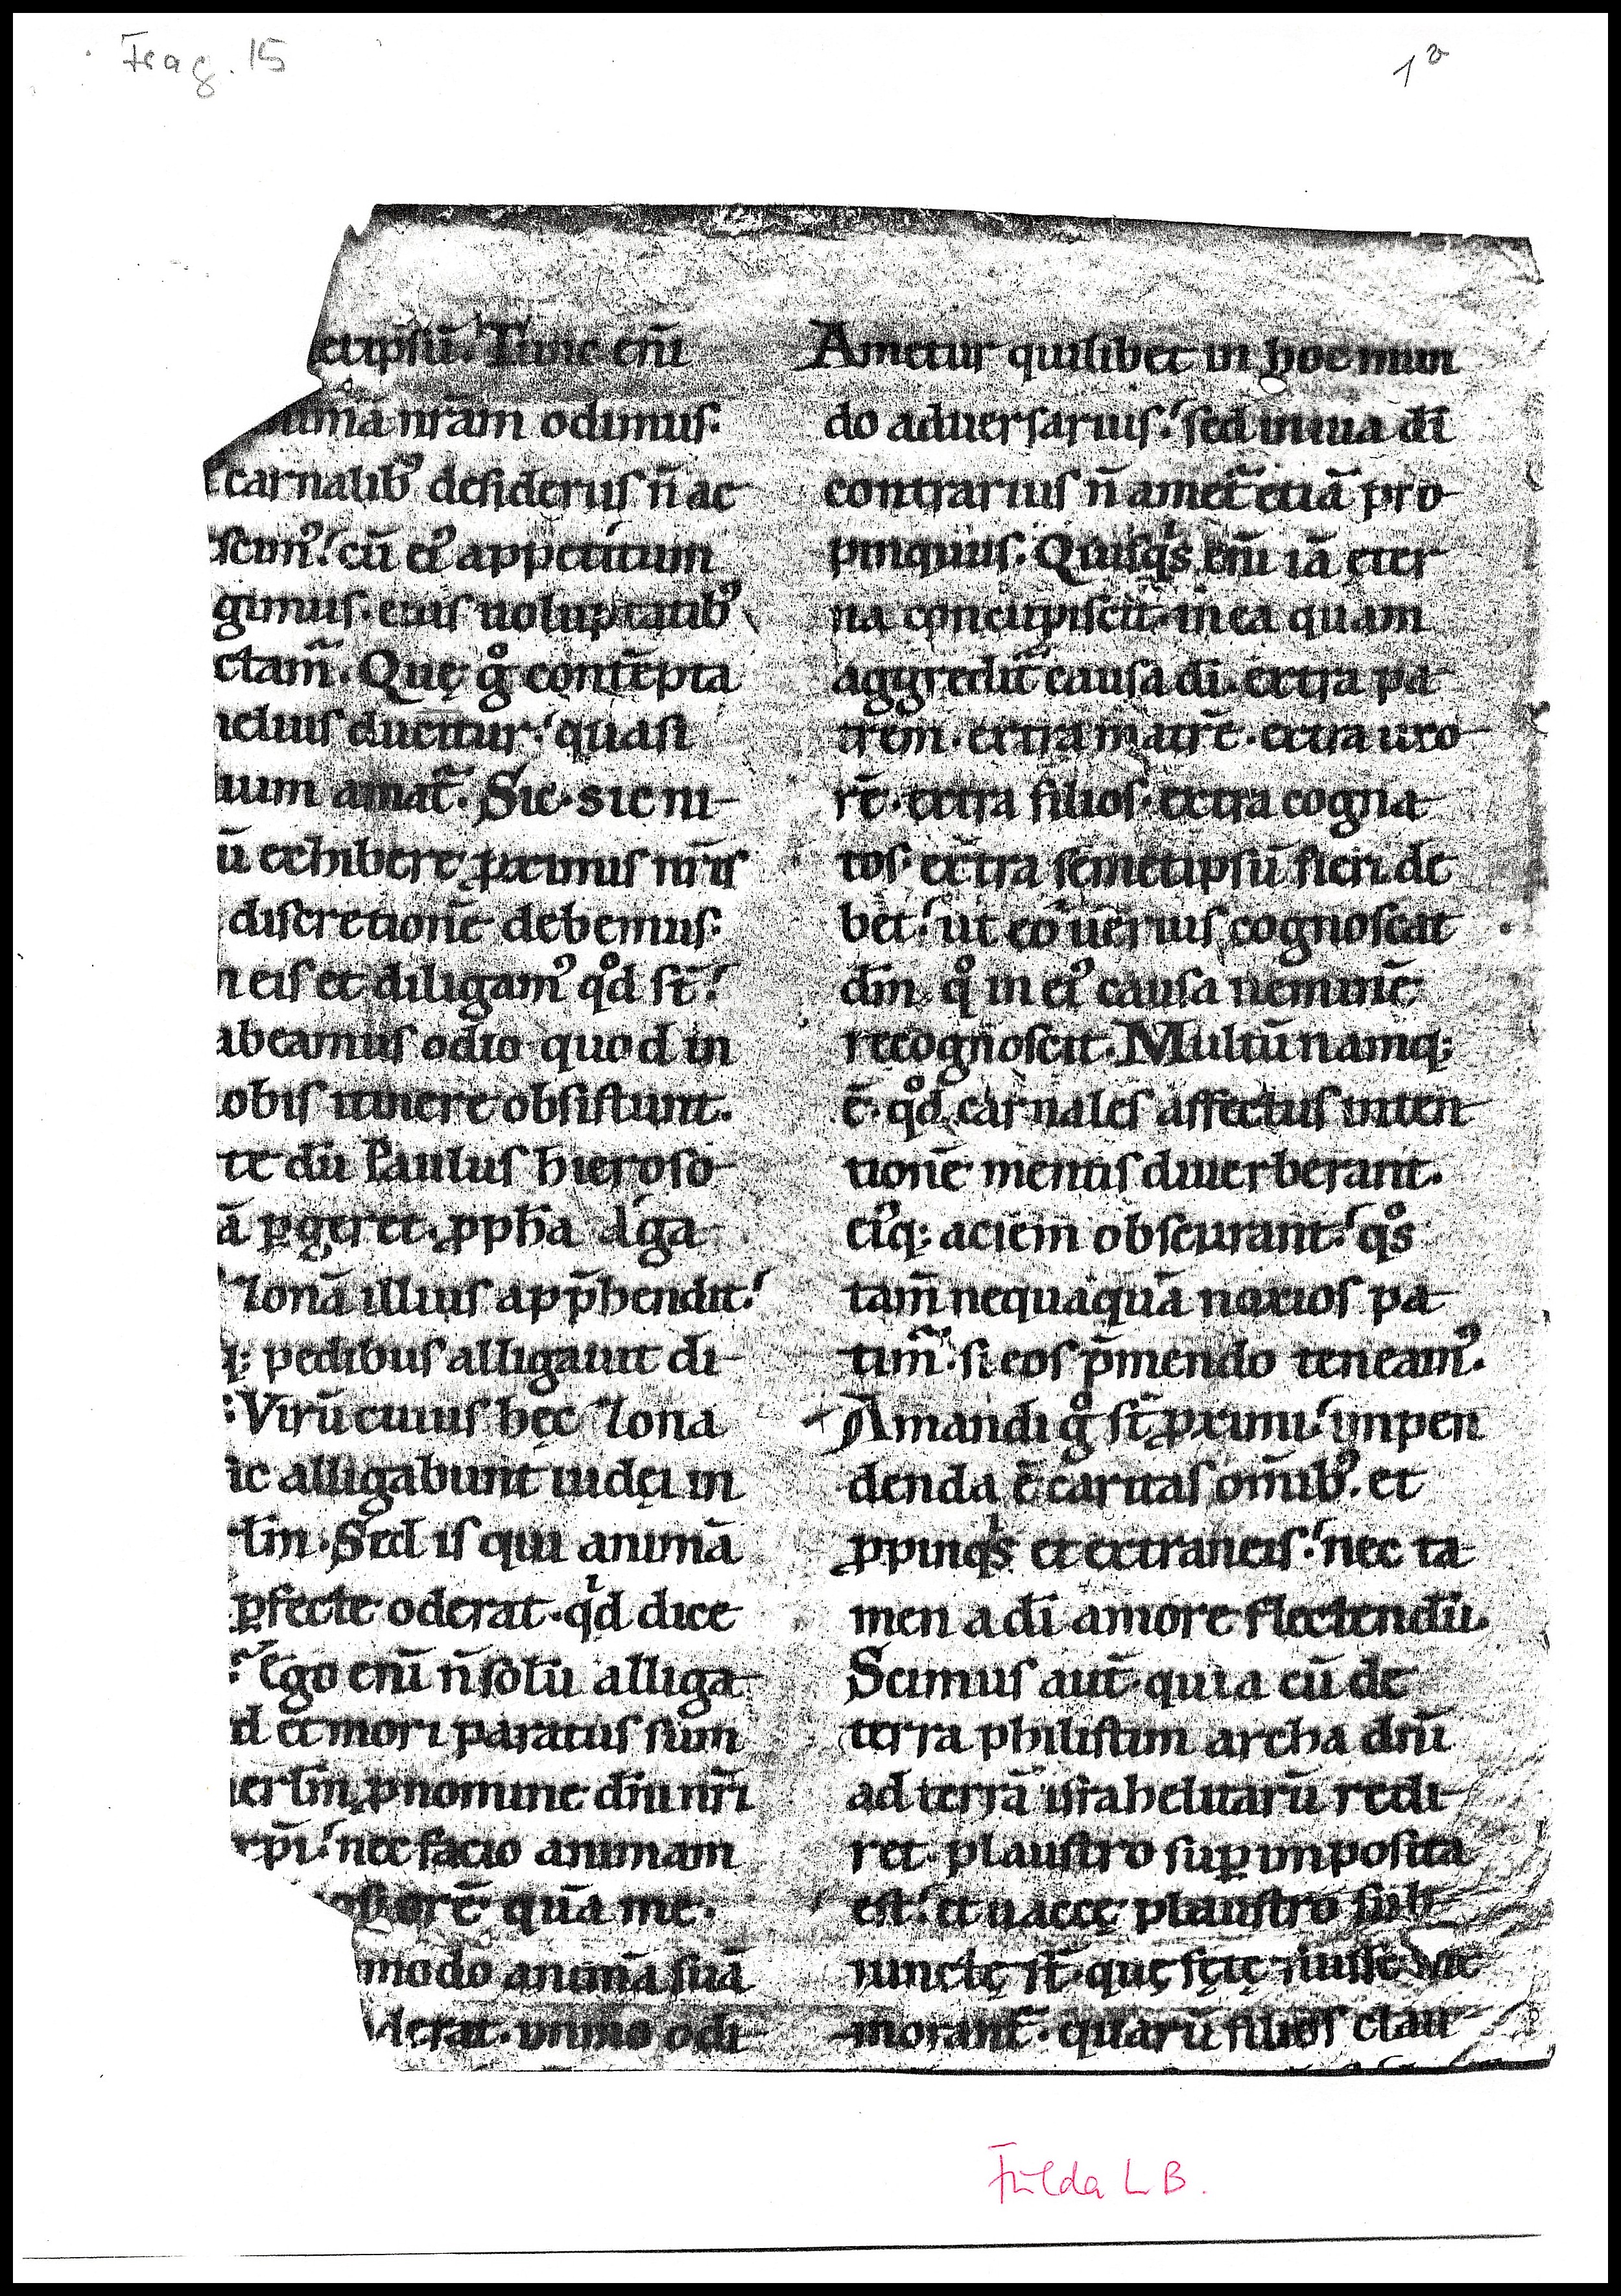 Frag. 15
1v
etipsū. Tunc eni̅
nimā nr̄am odimus:
carnalibꝰ desideriis n̄ ac
scimꝰ. cū eiꝰ appetitum
gimus. eius uoluptatibꝰ
ctam̅. Quę gͦ contēpta
melius ducitur. quasi
uum amat̄. Sic. sic ni-
ū exhibere ꝓximis nr̄is
discretionē debemus:
n eis et diligamꝰ qͦd st̄.
abeamus odio quod in
obis itinere obsistunt.
te dū Paulus hieroso-
ā ꝑgeret. ꝓpha̅ aga-
Zonā illius app̄hendit.
q; pedibus alligauit di-
: Virū cuius hęc Zona
ic alligabunt iudęi in
lm̅. Sed is qui animā
ꝑfecte oderat. qⁱd dice
Ego eni̅ n̄ solū alliga-
d et mori paratus sum
ierlm̅ ꝓ nomine dn̄i nr̄i
xp̄i. nec facio animam
osiorē quā me.
modo animā suā
derat. immo odi-
Ametur quilibet in hoc mun
do aduersarius. sed in uia di̅
contrarius n̄ amet̄ etiā pro-
pinquus. Quisqⁱs eni̅ iā ęter
na concupiscit. in ea quam
aggredit̄ causa di̅. extra pa-
trem. extra matrē. extra uxo-
rē. extra filios. extra cogna-
tos. extra semetipsū fieri de
bet. ut eo uerius cognoscat
dm̅. qͦ in eiꝰ causa neminē
recognoscit. Multū namq;
ē. qͦd carnales affectus inten-
tionē mentis diuerberant.
eiꝰq; aciem obscurant. qͦs
tam̅ nequaquā noxios pa-
tim̅. si eos p̄mendo teneamꝰ.
Amandi gͦ st̄ ꝓximi. impen
denda ē caritas om̅ibꝰ. et
ꝓpinqⁱs et extraneis. nec ta-
men a di̅ amore flectendū.
Scimus aut̄. quia cū de
terra philistim archa dn̄i
ad terrā israhelitarū redi-
ret. plaustro suꝑ imposita
est. et uaccę plaustro sub-
iunctę st̄. quę fętę fuisse me-
morant̄. quarū filios clau-
Fulda LB.